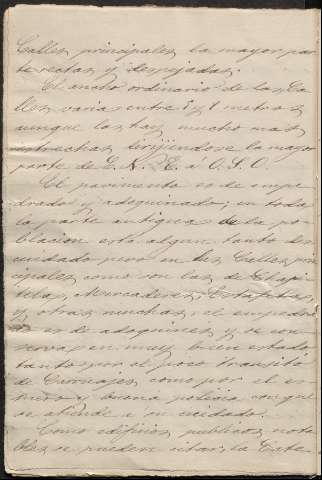 Calles principales la mayor par
te rectas y despejadas.
El ancho ordinario de las Ca
lles varia entre 7 y 9 metros
aunque las hay mucho mas
estrechas dirijiendose la mayor
parte de E. N. E. á O. S. O.
El pavimento es de empe
drados y adoquinado; en toda
la parte antigua de la po
blacion está algun tanto des
cuidado pero en las Calles prin
cipales como son las de Chapi
tela, Mercaderes, Estafeta,
y otras muchas, el empedra
do es de adoquines y se con
serva en muy buen estado
tanto por el poco transito
de Carruajes como por el es
mero y buena policia con que
se atiende á su cuidado.
Como edificios publicos nota
bles se pueden citar, la Cate